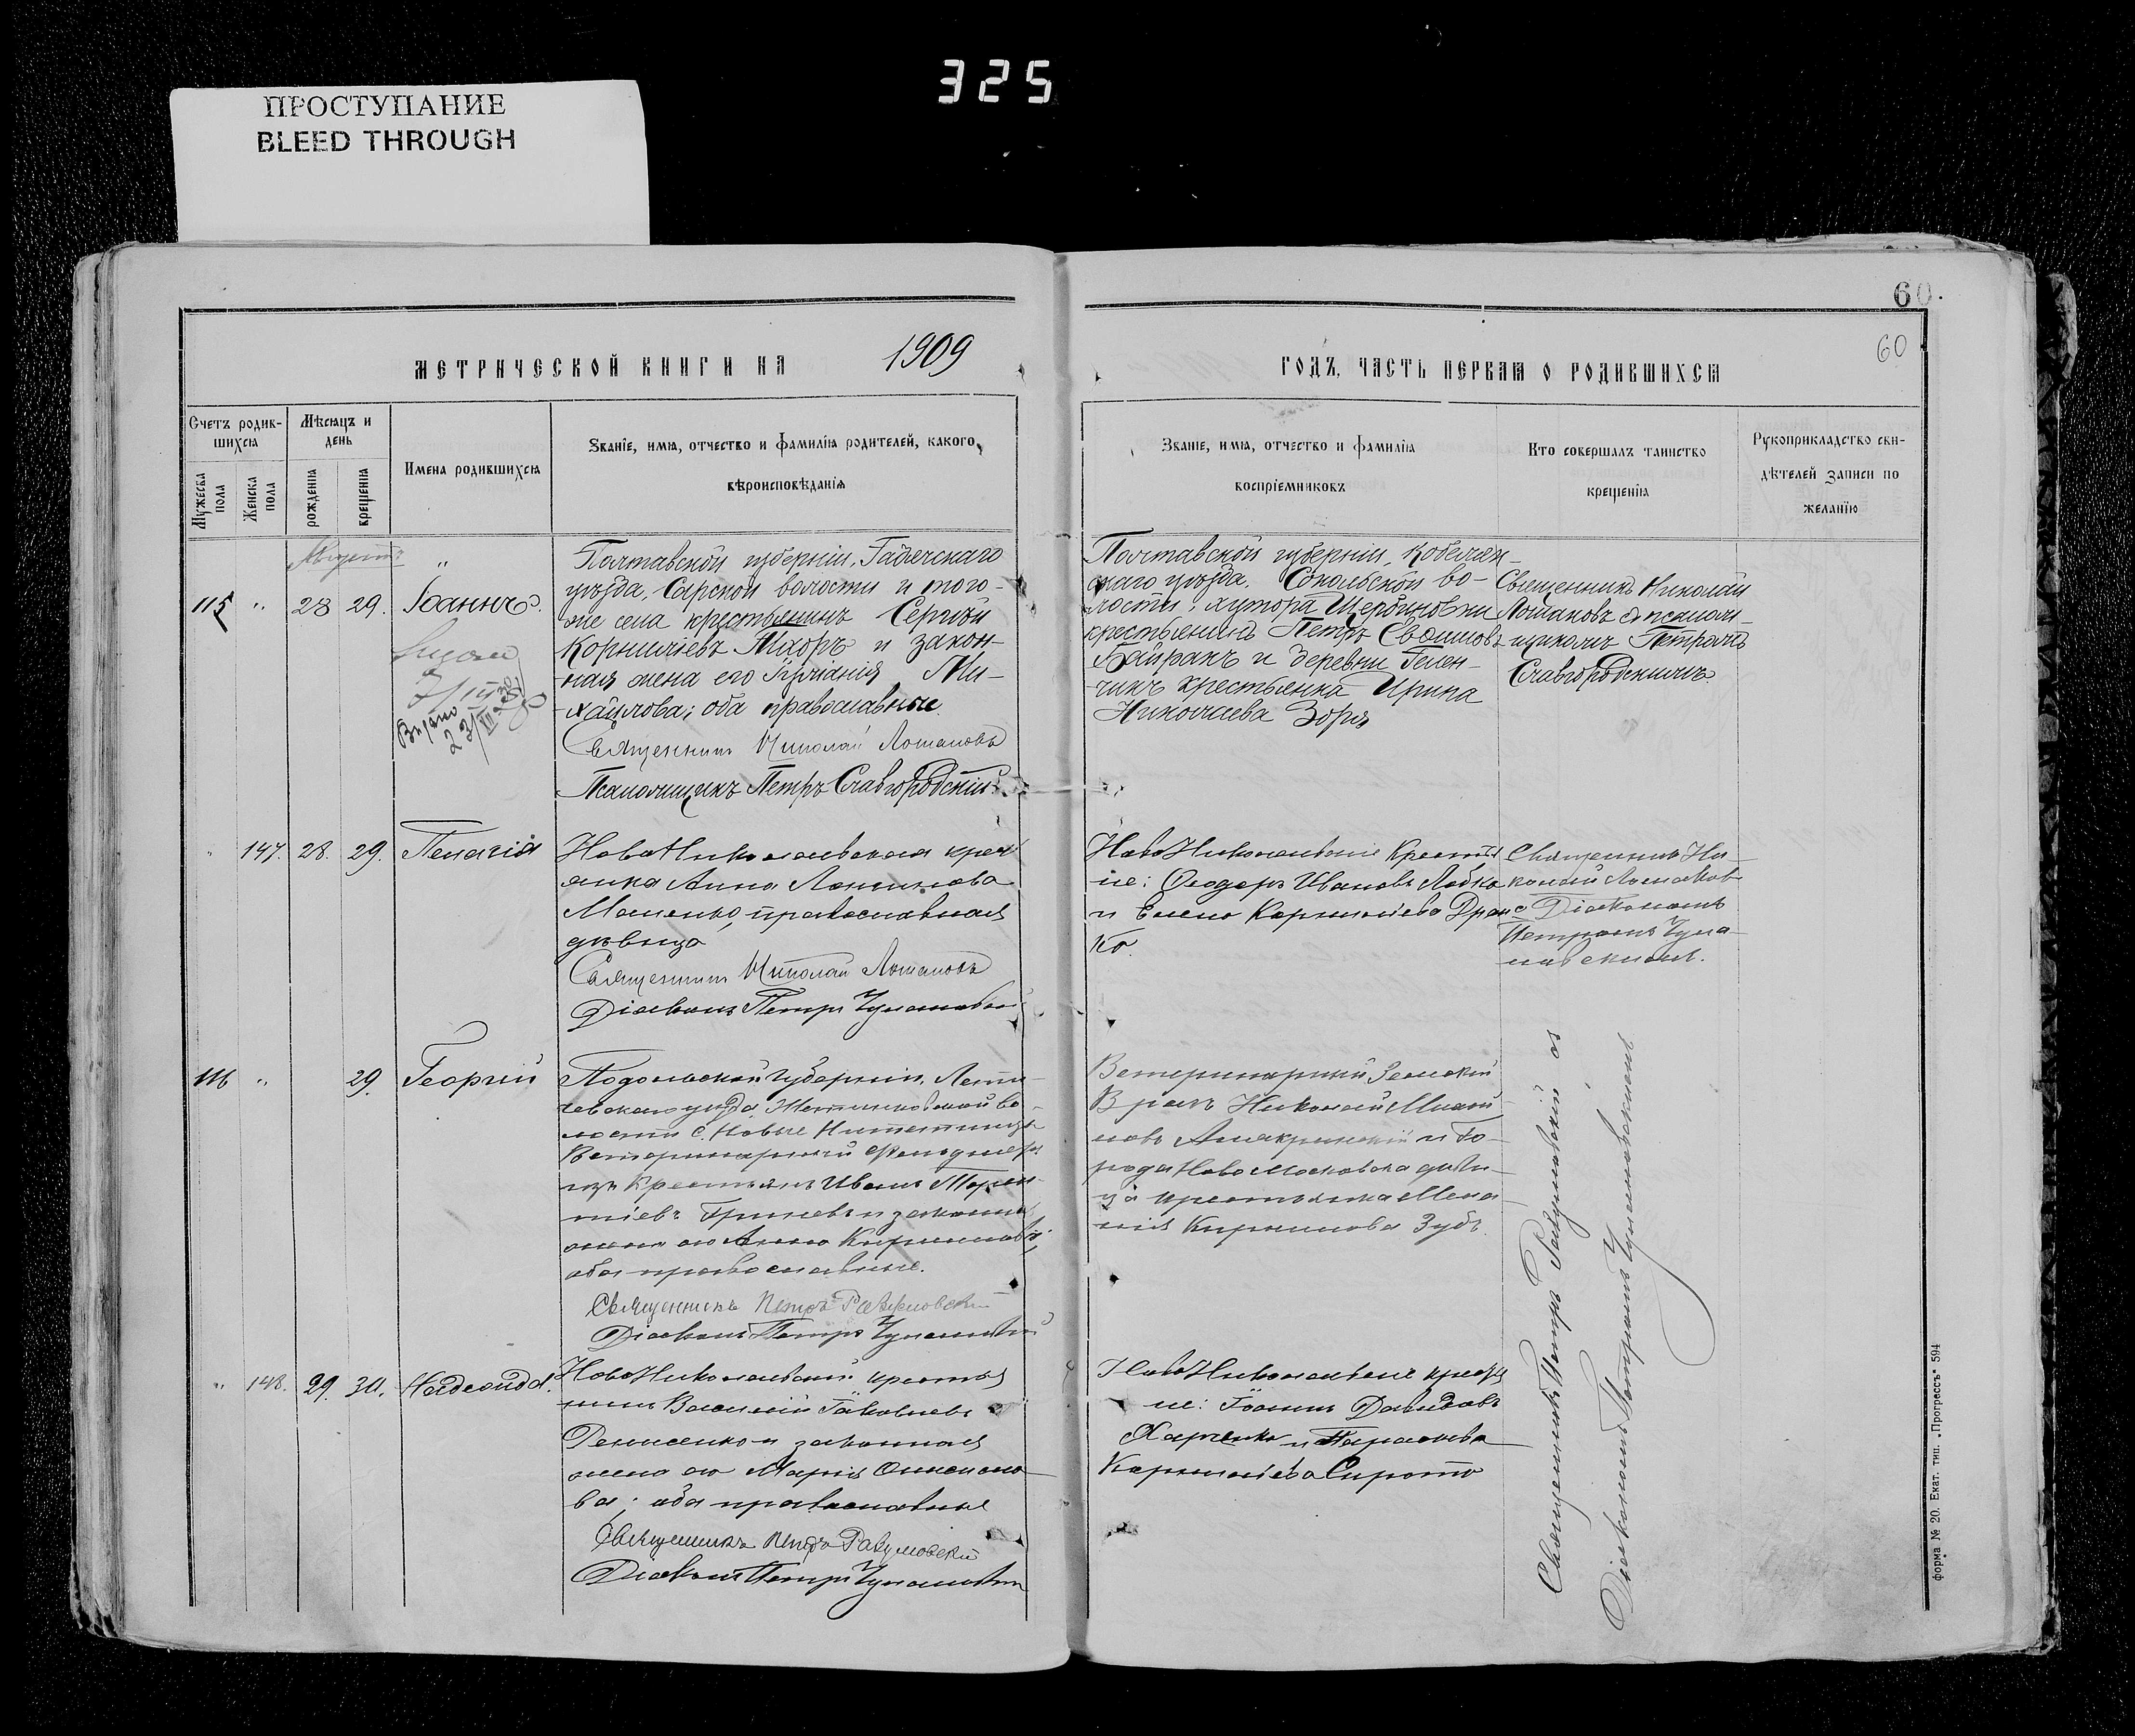 325
ПРОСТУПАНИЕ
BLEED THROUGH
60.
60
МЕТРИЧЕСКОЙ КНИГИ НА 1909
ГОДЪ, ЧАСТЬ ПЕРВАЯ О РОДИВШИХСЯ
Счетъ родив-
шихся
Мужеска
пола
Женска
пола
Мѣсяцъ и
день
рожденія
крещенія
Имена родившихся
Званіе, имя, отчество и фамилія родителей, какого
вѣроисповѣданія
Званіе, имя, отчество и фамилія
воспріемниковъ
Кто совершалъ таинство
крещенія
Рукоприкладство сви-
дѣтелей записи по
желанію
Августъ
115 " 28 29. Іоаннъ.
Полтавской губерніи, Гадячскаго
уѣзда, Сарской волости и того-
же села крестьянинъ Сергѣй
Корниліевъ Мхоръ и закон-
ная жена его Ми-
хайлова; оба православные
Священникъ Николай Лошаковъ
Псаломщикъ Петръ Славгородскій
Полтавской губерніи, Кобеляк-
скаго уѣзда, Сокольской во-
лости, хутора Щербиновки
крестьянинъ Петръ
Байракъ и деревни Гелен-
чикъ крестьянка Ирина
Николаева Зоря
Священникъ Николай
Лошаковъ съ псалом-
щикомъ Петромъ
Славгородскимъ.
" 147. 28. 29. Пелагія
НовоНиколаевская крест
янка Анна Логинова
православная
дѣвица
Священникъ Николай Лошаковъ
Діаконъ Петръ
НовоНиколаевскіе Крестья
не: Ѳеодоръ Ивановъ Лобко
и Елена Корниліева
ко.
Священникъ Ни-
колай Лошаковъ
с Діакономъ
Петромъ
116 " 29. Георгій
Подольской губерніи, Лети-
чевскаго уѣзда, во-
лости с. Новые
Ветеринарный Фельдшеръ
изъ Крестьянъ Иванъ
тіевъ и законная
жена его Анна Кириллова,
оба православные.
Священникъ Петръ Разумовскій
Діаконъ Петръ
Ветеринарный Земскій
Врачъ Николай Михай
ловъ и го-
рода НовоМосковска дѣви-
ца крестьянка Мела
нія Кириллова Зубъ.
" 148. 29. 30.
НовоНиколаевскій крестья
нинъ Василій Іаковлевъ
Денисенко и законная
жена его Марія
ва; оба православные
Священникъ Петръ Разумовскій
Діаконъ Петръ
НовоНиколаевскіе крестья
не: Іоаннъ Давидовъ
Харченко и Параскева
Корниліева Сирота
Священникъ Петръ Разумовскій съ
Діакономъ Петромъ
форма № 20. Екат. тип. „Прогрессъ" 594